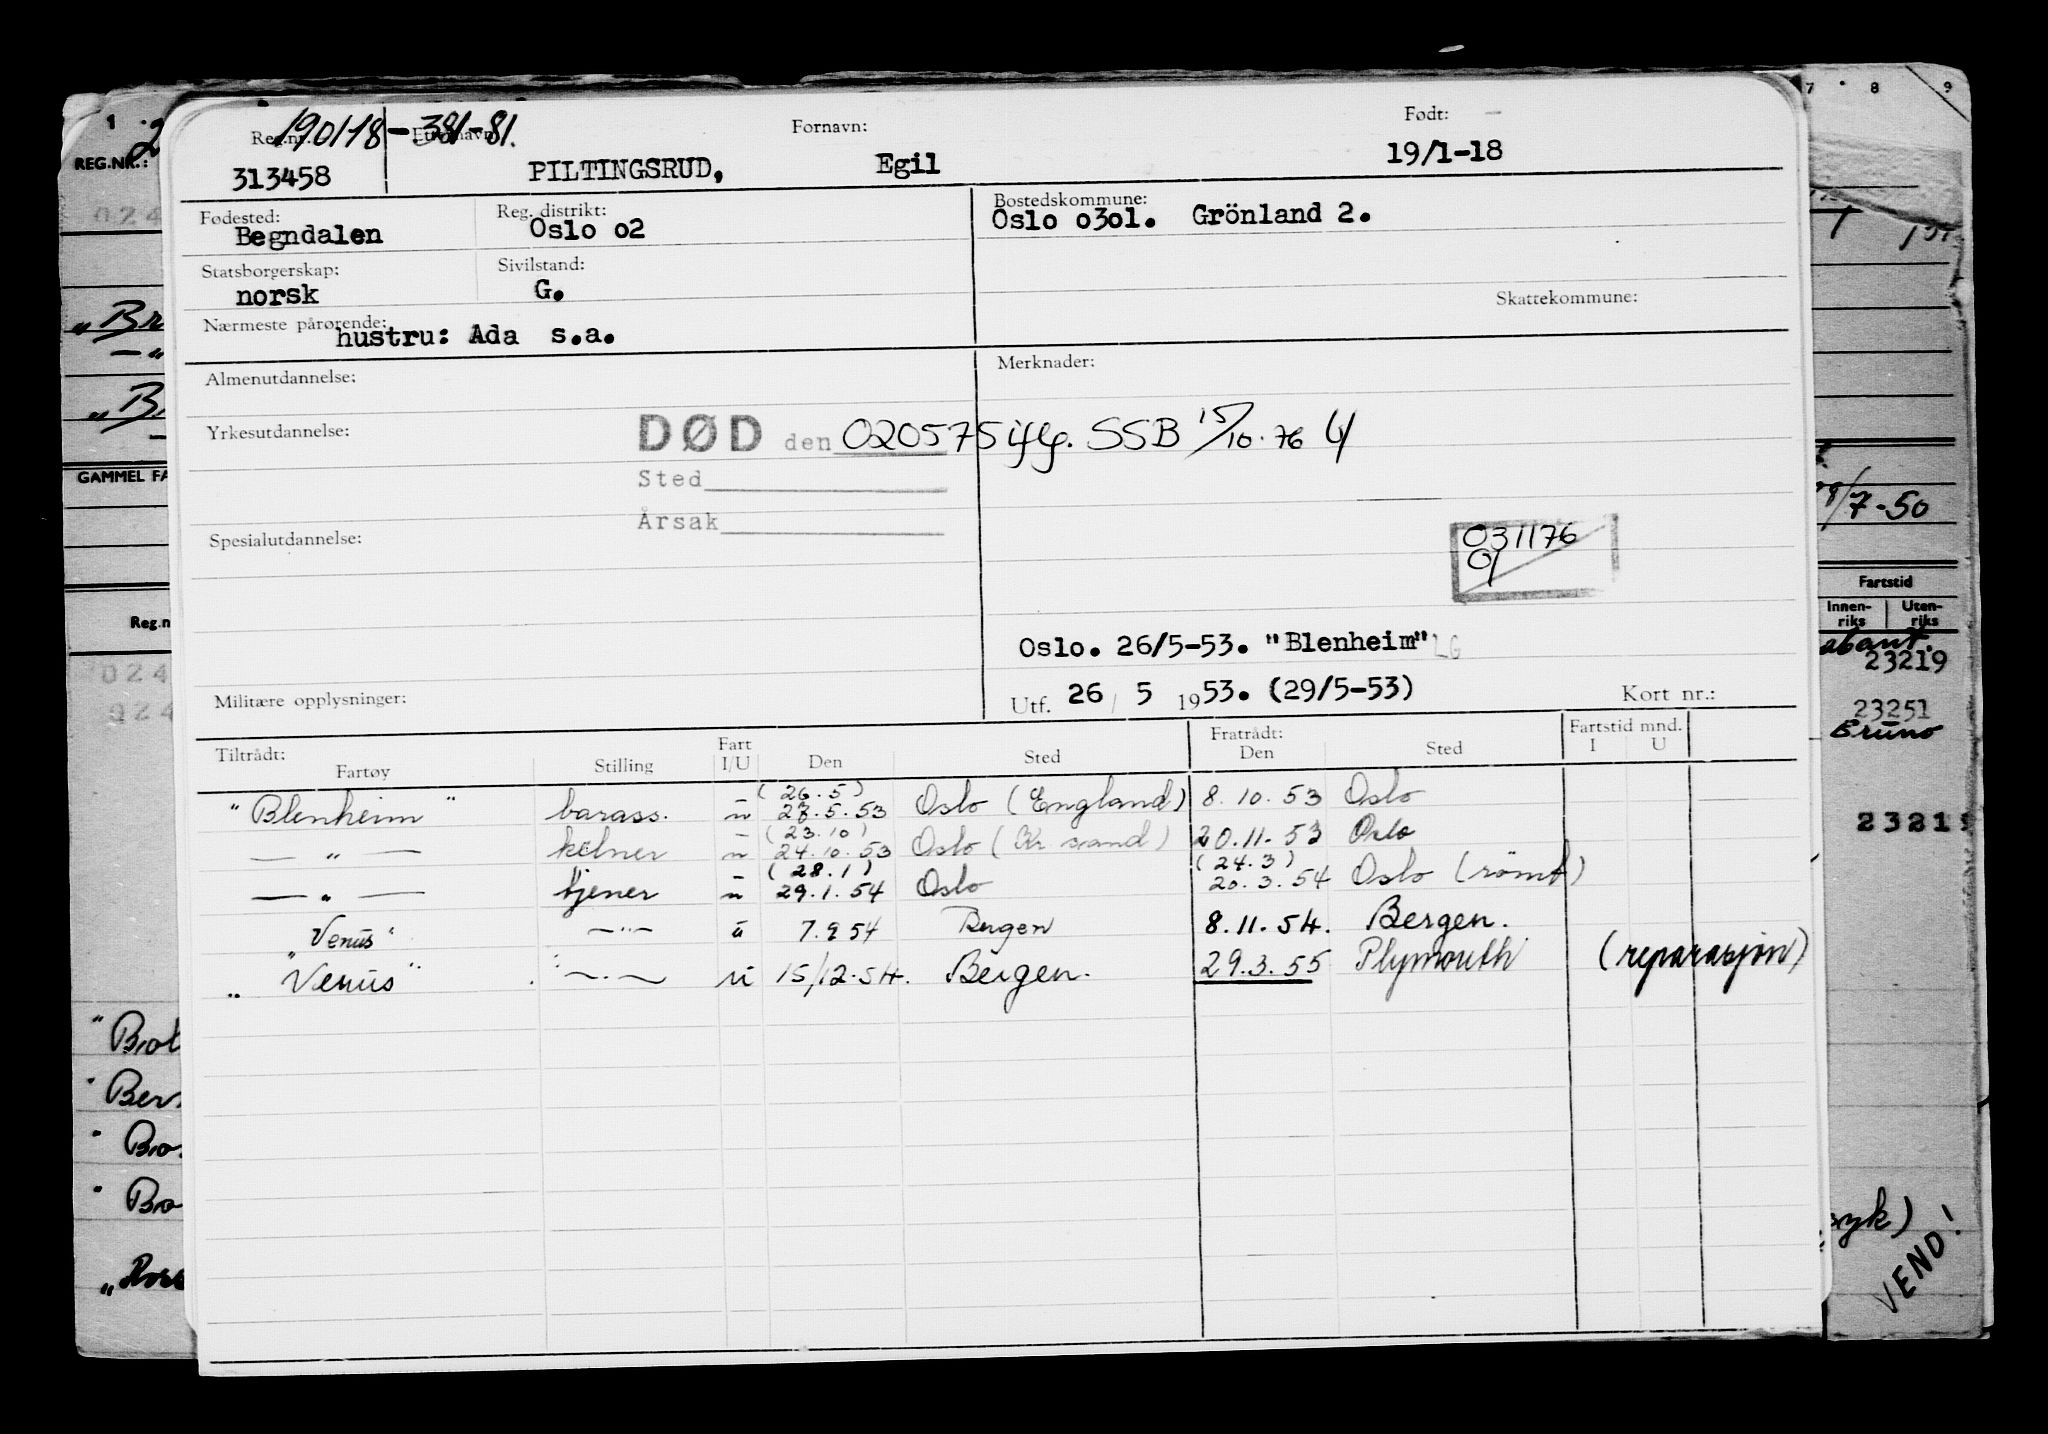 190118-381-81.
Reg.nr. Etternavn: Fornavn: Født:
313458 PILTINGSRUD, Egil 19/1-18
Fødested: Reg. distrikt: Bostedskommune:
Begndalen Oslo o2 Oslo o3o1. Grönland 2.
Statsborgerskap: Sivilstand:
norsk G.
Skattekommune:
Nærmeste pårørende:
hustru: Ada s.a.
Almenutdannelse: Merknader:
Yrkesutdannelse:
DØD den 020575 iflg. SSB 15/10.76
Sted
Årsak
Spesialutdannelse:
031176
Oslo. 26/5-53. "Blenheim" LG
Militære opplysninger:
Utf. 26 / 5 1953. (29/5-53) Kort nr.:
Tiltrådt: Fart Fratrådt: Fartstid mnd.
Fartøy Stilling I/U Den Sted Den Sted I U
(26.5)
"Blenheim" barass. u 27.5.53 Oslo (England) 8.10.53 Oslo
(23.10)
— " — kelner u 24.10.53 Oslo (Kr.sand) 20.11.53 Oslo
(28.1) (24.3)
— " — tjener u 29.1.54 Oslo 20.3.54 Oslo (römt)
"Venus" — " — u 7.9 54 Bergen 8.11.54. Bergen.
"Venus" — " — u 15/12.54. Bergen. 29.3.55 Plymouth (reparasjon)
1 2 7 8 9
REG.NR.:
024
"Br
— "
"B
GAMMEL FA
/7-50
Fartstid
Innen-riks Uten-riks
Reg.n
23219
024
024
23251
Bruno
2321
"Bro
"Ber
"Bro
"Bro
VEND!